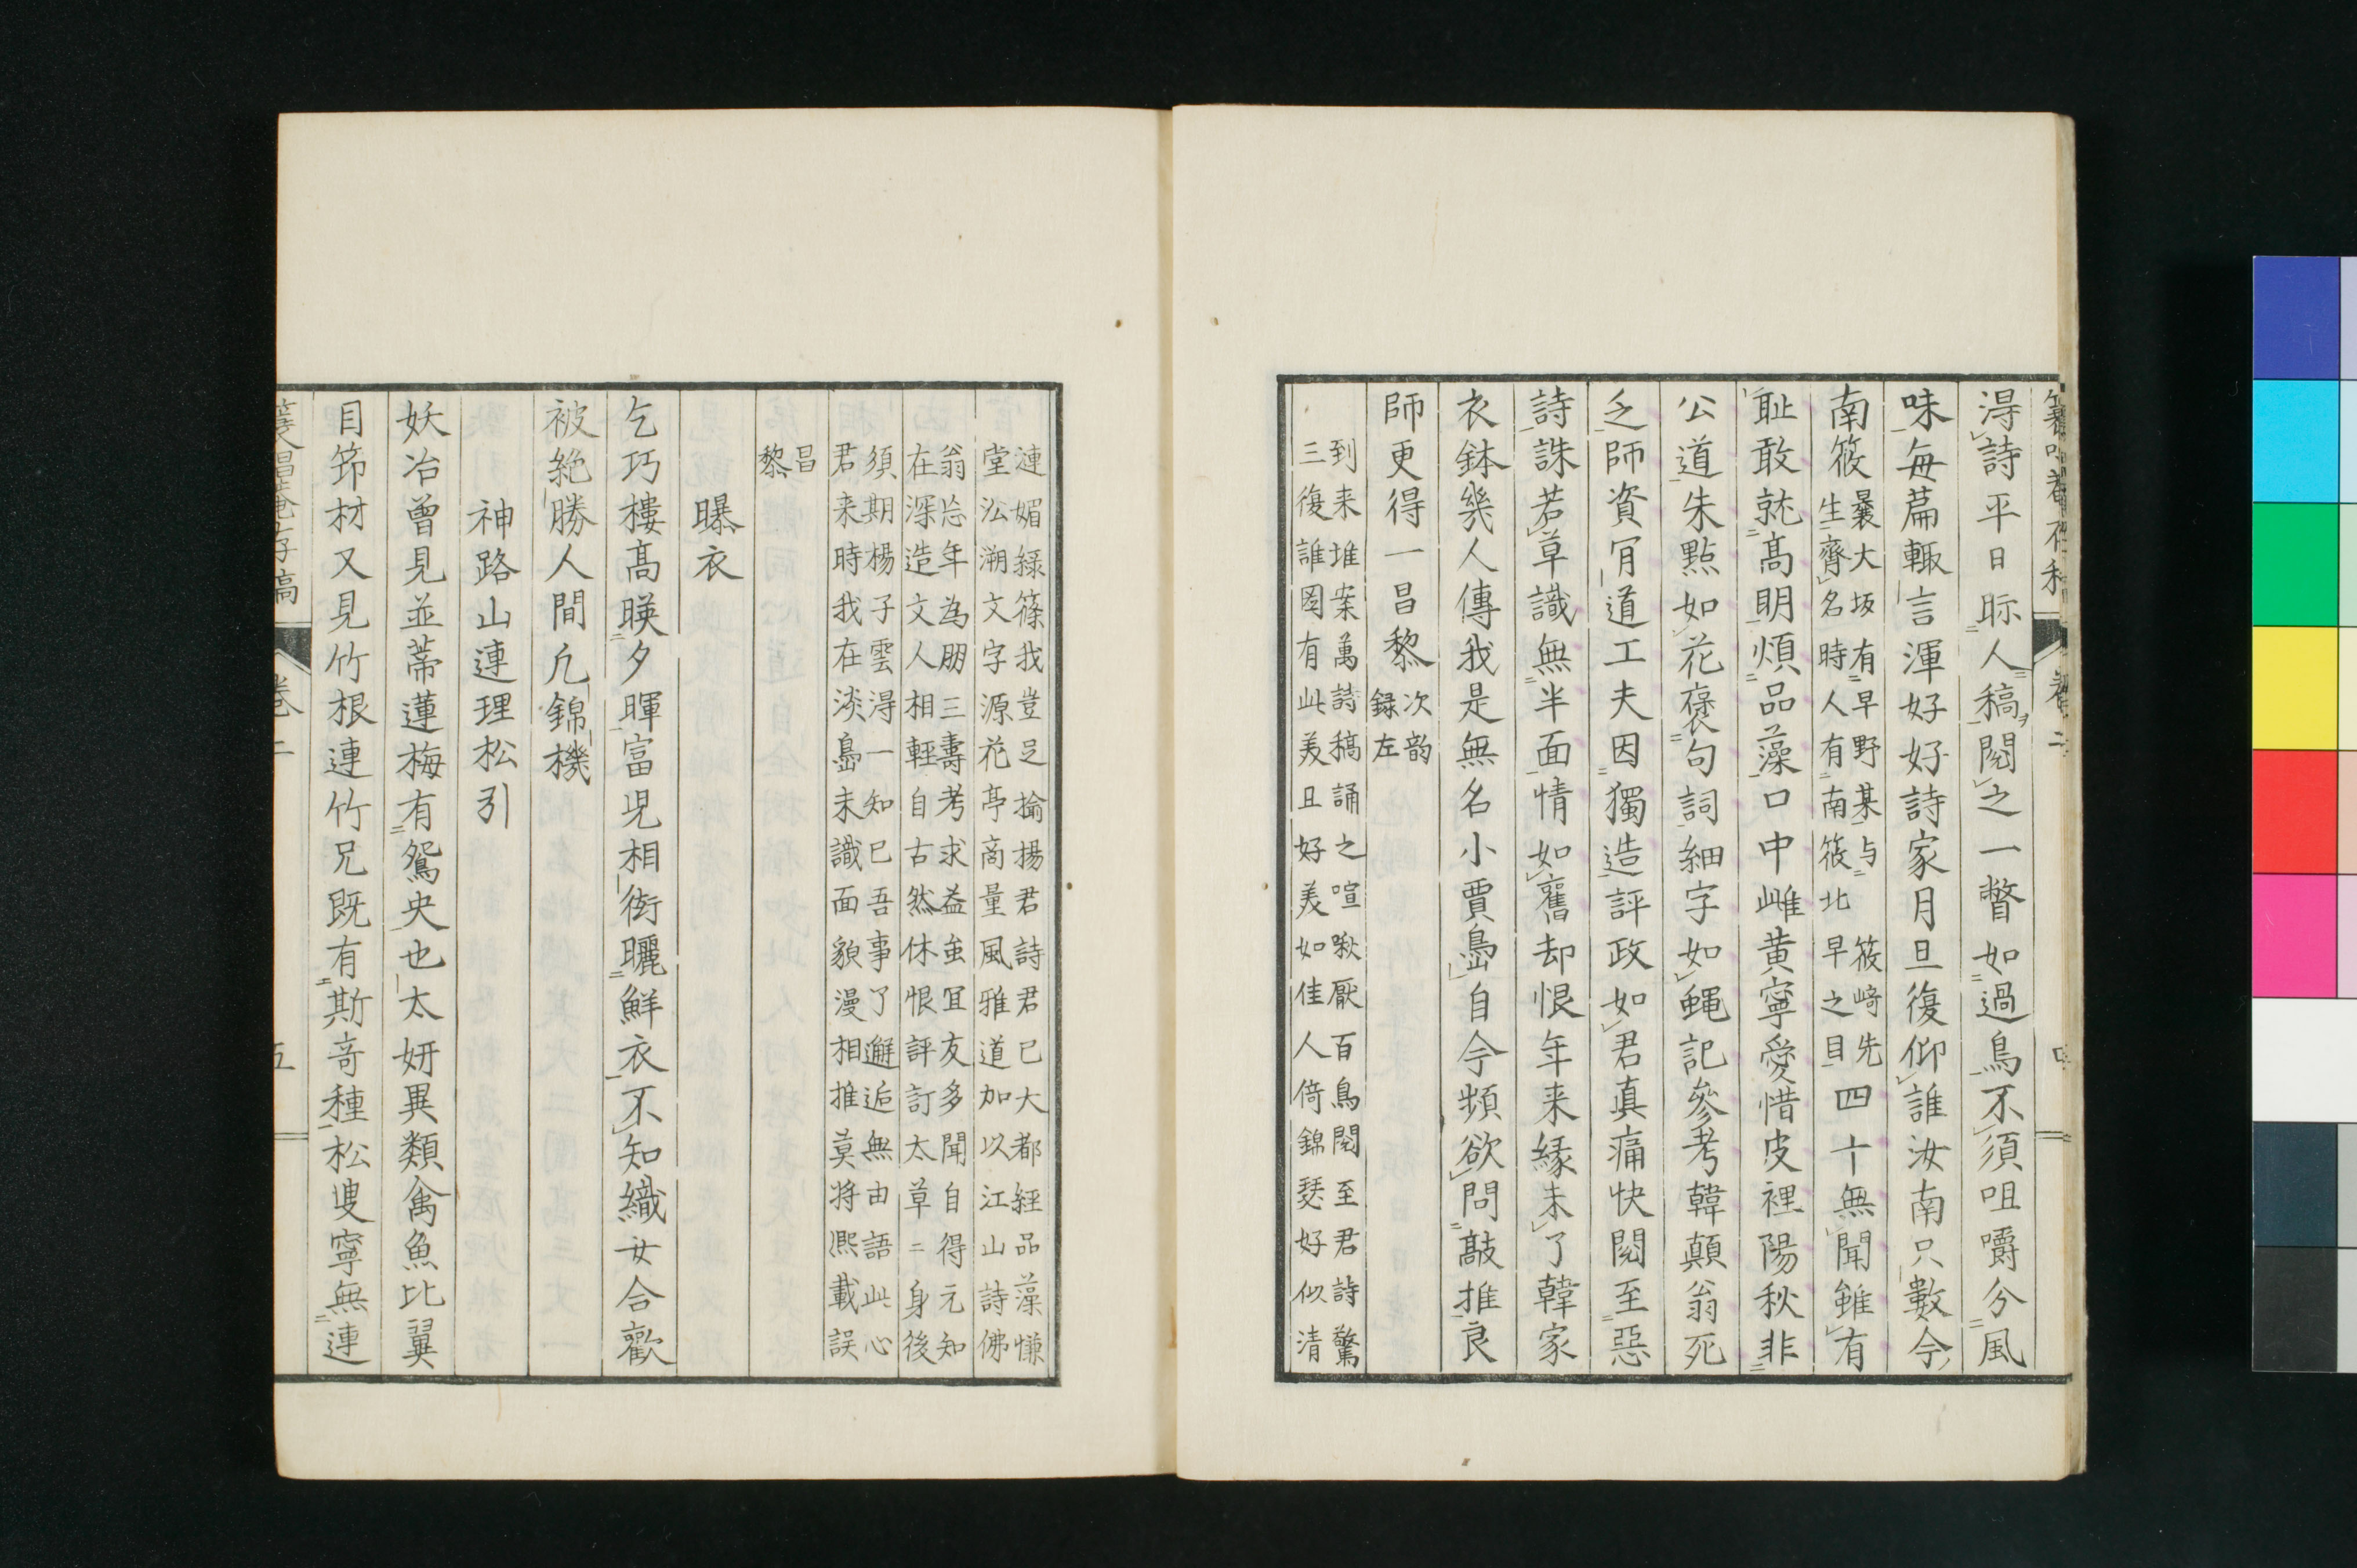 得詩平日眎人稿閲之一瞥如過鳥不須咀嚼分風
味毎萹輙言渾好好詩家月旦復仰誰汝南只數今
南筱曩大坂有早野某与筱﨑先
生齊名時人有南筱北早之目四十無聞雖有
耻敢就髙明煩品藻口中雌黄寧愛惜皮裡陽秋非
公道朱點如花褒句詞細字如蝿記參考韓顛翁死
乏師資肎道工夫因獨造評政如君真痛快閲至惡
詩誅若草識無半面情如舊却恨年来縁未了韓家
衣鉢幾人傳我是無名小賈島自今頻欲問敲推良
師更得一昌黎次韵
録左
到来堆案萬詩稿誦之喧啾厭百鳥閲至君詩驚
三復誰圖有此美且好美如佳人倚錦瑟好似清
漣媚緑篠我豈足揄揚君詩君已大都経品藻慊
堂㳂溯文字源花亭商量風雅道加以江山詩佛
翁忘年為朋三壽考求益虽冝友多聞自得元知
在深造文人相輕自古然休恨評訂太草〻身後
須期楊子雲得一知已吾事了邂逅無由語此心
君来時我在淡島未識面貌漫相推莫将凞載誤
昌
黎
曝衣
乞巧樓髙暎夕暉富児相衒曬鮮衣不知織女合歡
被絶勝人間凢錦機
神路山連理松引
妖冶曾見並蒂蓮梅有鴛央也太妍異類禽魚比翼
目笻材又見竹根連竹兄既有斯竒種松叟寧無連
卷二
五